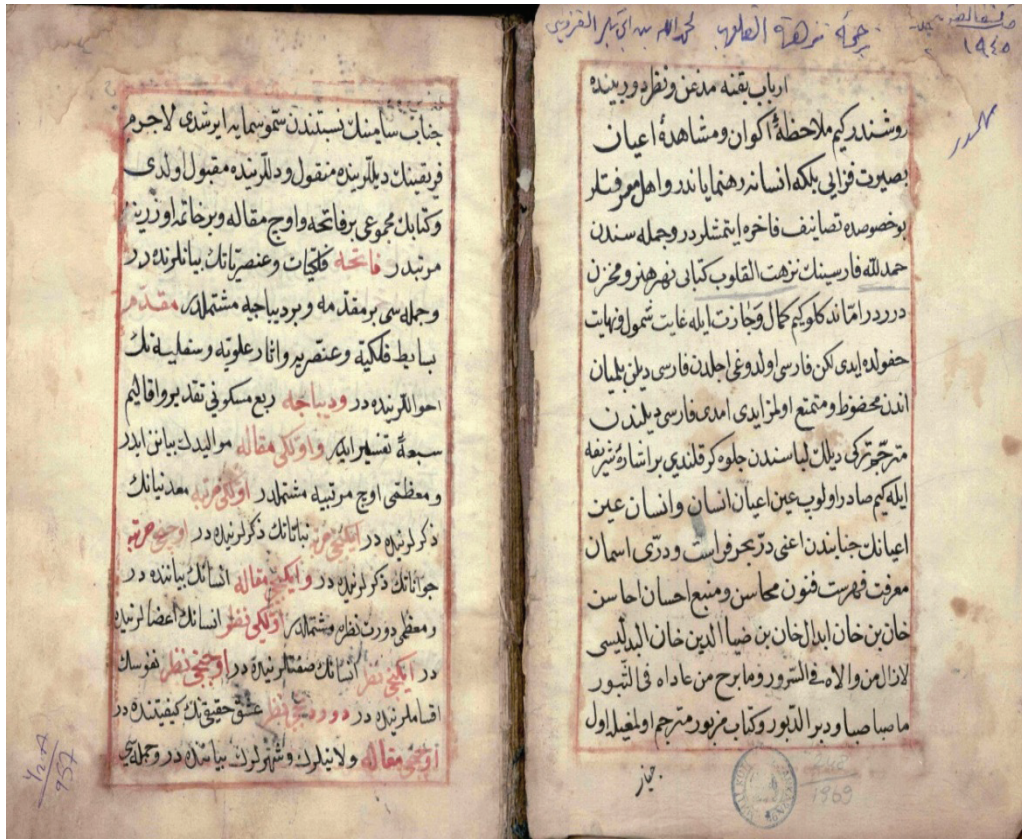 ترجمة نزهة القلوب لحمد الله بن ابى بكر القزوينى
١٩٤٥
ارباب بقنه مدغن ونظر دوربینده
روشندر کیم ملاحظۀ اکوان ومشاهدۀ اعیان
بصیرت فزایی بلکه انسانه رهنمایاندر واهل معرفتلر
بوخصوصده تصانیف فاخره ایتمشلردر وجمله سندن
حمدلله فارسینك نزهت القلوب کتابی نهر هنر ومخزن
درردر امّا اندکلوکیم کمال وجازت ایله غایت شمول ونهایت
حفولده ایدی لکن فارسی اولدوغی اجلدن فارسی دیلن بلمیان
اندن محضوظ ومتمتع اولمزایدی امدی فارسی دیلندن
مترجم ترکی دیللك لباسندن جلوه کر قلندی بر اشارۀ شریفه
ایله کیم صادر اولوب عین اعیان انسان وانسان عین
اعیانك جنابندن اعنی درّ بحر فراست ودرّی اسمان
معرفت فهرست فنون محاسن ومنبع احسان احاسن
خان بن خان ابدال خان بن ضیا الدین خان البدلیسی
لازال من والاه فی السّرور وما برح من عاداه فی الثّبور
ما صبا صبا ودبر الدّبور وکتاب مزبور مترجم اولمغیله اول
248
1969
جناب سامینك نسبتندن سموّ سمایه ایرشدی لاجرم
فریقینك دیللرینده منقول ودللرینده مقبول اولدی
وکتابك مجموعی بر فاتحه واوج مقاله وبر خاتمه اوزرینه
مرتبدر فاتحه فلکیات وعنصریاتك بیانلرنده در
وجمله سی بر مقدّمه وبر دیباجه مشتملدر مقدّمه
بسایط فلکیّه وعنصریه واثار علویّه وسفلیه نك
احواللرینده در ودیباجه ربع مسکونی تقدیر واقالیم
سبعۀ تفسیر ایدر واوّلکی مقاله موالیدك بیانن ایدر
ومعظمی اوج مرتبیه مشتملدر اوّلکی مرتبه معدنیاتك
ذکرلرینده در ایکنجی مرتبه نباتاتك ذکرلرینده در اوجنجی مرتبه
حیواناتك ذکرلرینده در وایکنجی مقاله انسانك بیاننده در
ومعظمی دورت نظره مشتملدر اوّلکی نظر انسانك اعضالرینده
در ایکنجی نظر انسانك صفتلرینده در اوجنجی نظر نفوسك
اقساملرینده در دوردنجی نظر عشق حقیقینك کیفیتنده در
اوجنجی مقاله ولایتلرك وشهرلرك بیاننده در وجمله سی
957